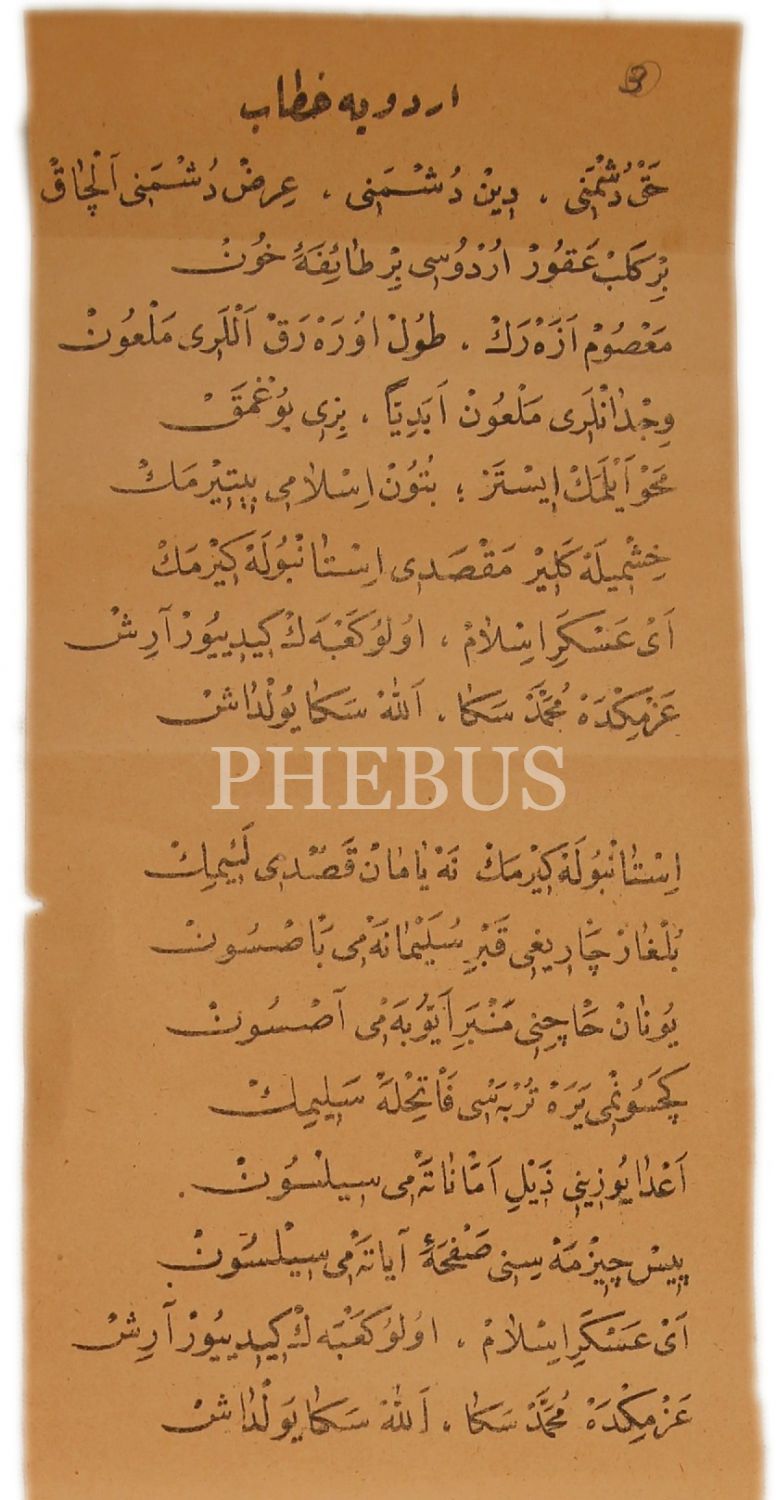 3
اردويه خطاب
حَقْ دُشْمَنِی ، دِينْ دُشْمَنِی ، عِرضْ دُشْمَنِی اَلْچَاقْ
بِرْ كَلْبِ عَقُورْ اُرْدُوسِی بِرْ طَائِفَۀ خُونْ
مَعْصُومْ اَزَەرَكْ ، طُولْ اوُرَەرَقْ اَللَرِی مَلْعُونْ
وِجْدَانْلَرِی مَلْعُونْ اَبَدِيًّا ، بِزِی بُوغْمَقْ
مَحْوْ اَيْلَمَكْ اِيسْتَرْ ؛ بُتُونْ اِسْلَامِی بِيتِيرْمَكْ
خِشْمِيلَهْ كَلِيرْ مَقْصَدِی اِسْتَانْبُولَهْ كِيرْمَكْ
اَیْ عَسْكَرِ اِسْلَامْ ، اوُلُو كَعْبَەكْ كِيدِييُورْ آرِشْ
عَزْمِكْدَهْ مُحَمَّدْ سَكَا ، اَللهْ سَكَا يُولْدَاشْ
PHEBUS
اِسْتَانْبُولَهْ كِيرْمَكْ نَهْ يَامَانْ قَصْدِی لَئِيمِكْ
بُلْغَارْ چَارِيغِی قَبْرِ سُلَيْمَانَەمِی بَاصْسُونْ
يُونَانْ حَاچِنِی مَنْبَرِ اَيُّوبَەمِی آصْسُونْ
كَچْسُونْمِی يَرَهْ تُرْبَەسِی فَاتِحْلَهْ سَلِيمِكْ
اَعْدَا يُوزِينِی ذَيْلِ اَمَانَاتَەمِی سِيلْسُونْ
پِيسْ چِيزْمَەسِنِی صَفْحَۀ آيَاتَەمِی سِيلْسُونْ
اَیْ عَسْكَرِ اِسْلَامْ ، اوُلُو كَعْبَەكْ كِيدِييُورْ آرِشْ
عَزْمِكْدَهْ مُحَمَّدْ سَكَا ، اَللهْ سَكَا يُولْدَاشْ